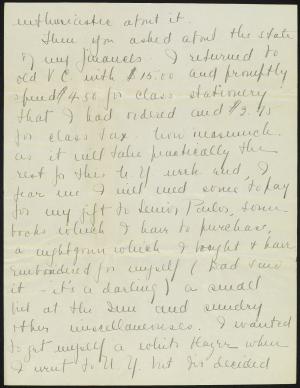 enthusiastic about it.
Then you asked about the state
of my finances. I returned to
old V C. with $15.00 and promptly
spend $4.50 for class stationery
that I had ordered and $3.75
for class tax. Now inasmuch
as it will take practically the
rest for the N. Y. week end, I
fear me I will need some to pay
for my gift to Senior Parlor, some
books which I have to purchase,
a nightgown which I bought & have
embroidered for myself (I had
it - it's a darling) a small
bit at the Inn and sundry
other miscellaneouses. I wanted
to get myself a white
when
I went to N. Y. but I've decided